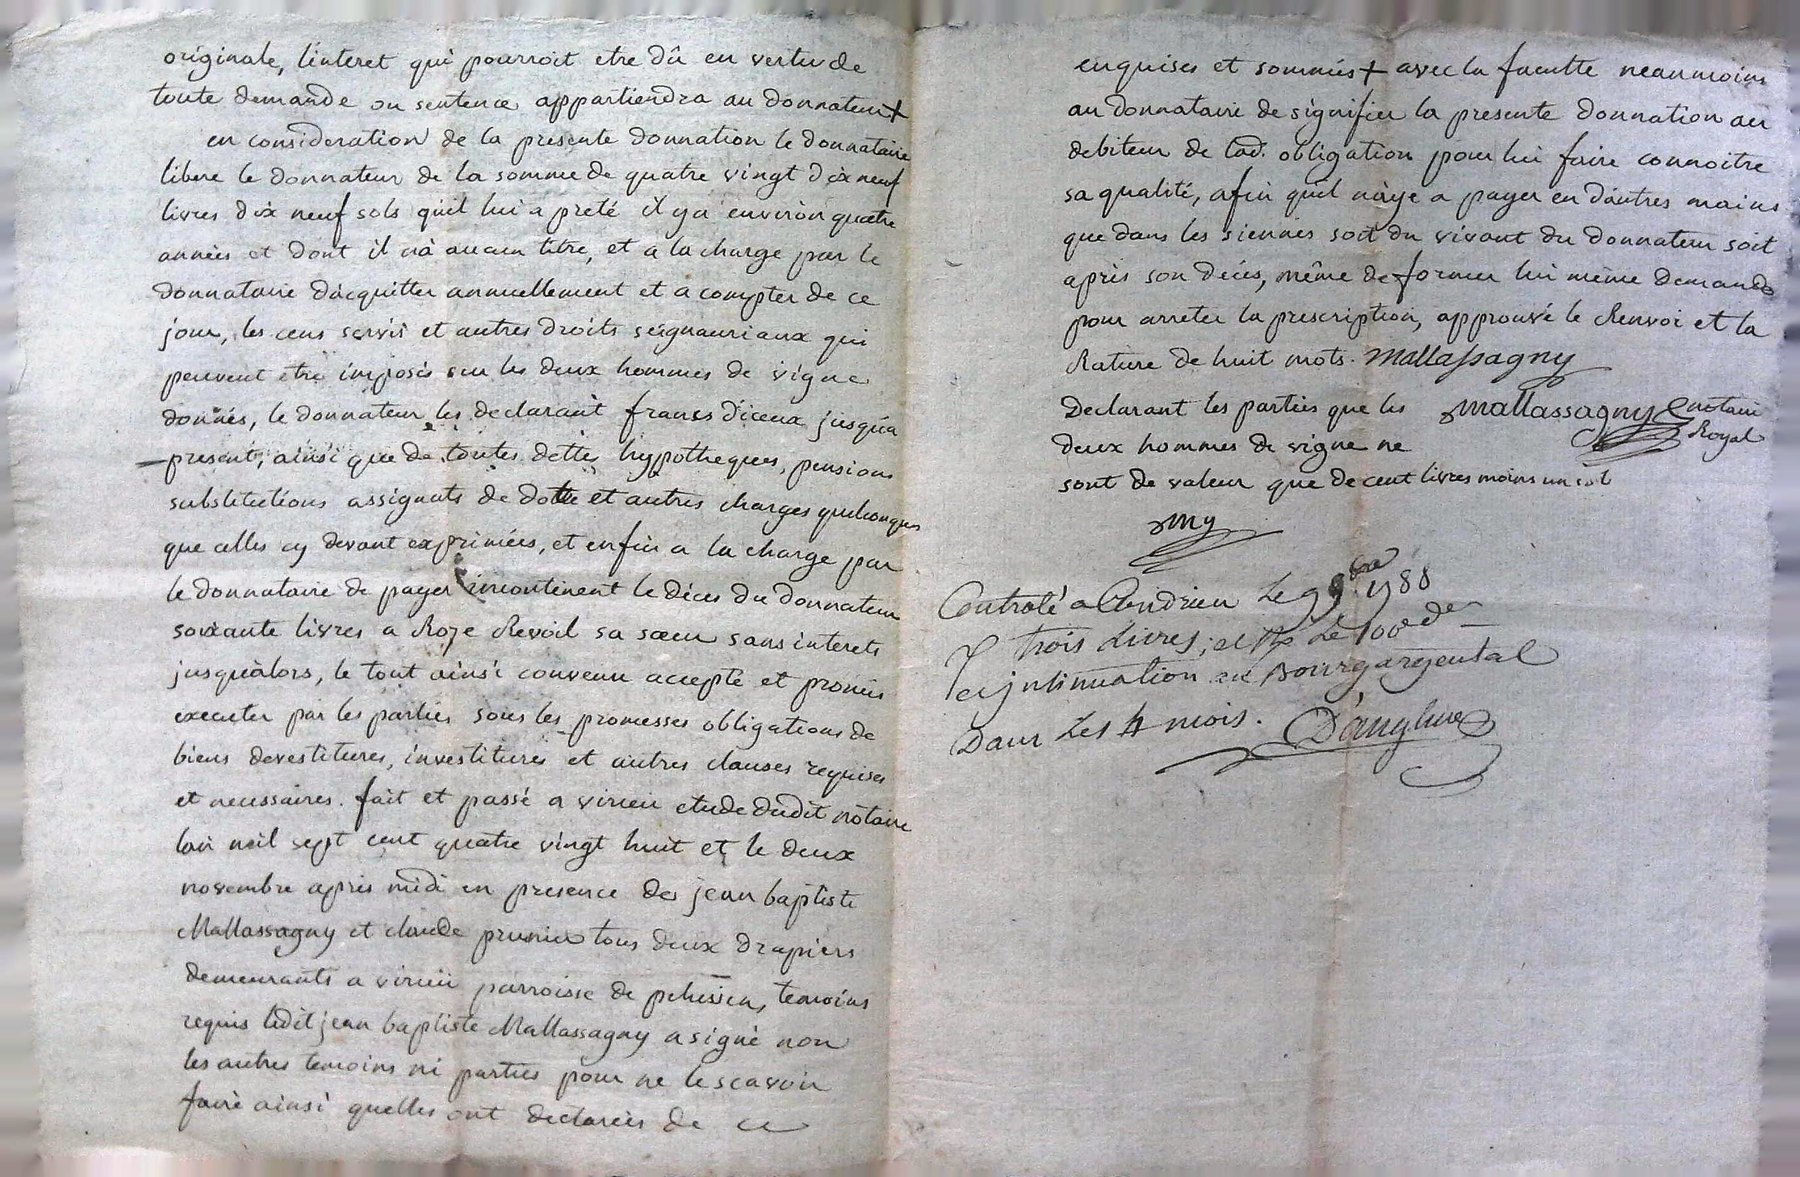 originale, linteret qui pourroit etre dû en vertu de
toute demande ou sentence appartiendra au donnateur +
en consideration de la presente donnation le donnataire
libere le donnateur de la somme de quatre vingt dix neuf
livres dix neuf sols quil lui a preté il y a environ quatre
années et dont il n'a aucun titre, et a la charge par le
donnataire dacquitter annuellement et a compter de ce
jour, les cens servis et autres droits seigneuriaux qui
peuvent etre imposés sur les deux hommes de vigne
donnés, le donnateur les declarant francs d'iceux jusqua
present, ainsi que de toutes dettes hypotheques, pensions
substitutions assignats de dotte et autres charges quelconques
que celles cy devant exprimées, et enfin a la charge par
le donnataire de payer incontinent le déces du donnateur
soixante livres a Roze Revoil sa sœur sans interets
jusqu'alors, le tout ainsi convenu accepté et promis
executer par les parties sous les promesses obligations de
biens devestitures, investitures et autres clauses requises
et necessaires. fait et passé a virieu etude dudit notaire
lan mil sept cent quatre vingt huit et le deux
novembre apres midi en presence de jean baptiste
Mallassagny et claude prunier tous deux drapiers
demeurants a virieu parroisse de pelussin, temoins
requis ledit jean baptiste Mallassagny a signé non
les autres temoins ni parties pour ne le scavoir
faire ainsi quelles ont declarées de ce
enquises et sommées + avec la faculte neanmoins
au donnataire de signifier la presente donnation au
debiteur de lad. obligation pour lui faire connoitre
sa qualité, afin quil n'aye a payer en d'autres mains
que dans les siennes soit du vivant du donnateur soit
après son decès, même de former lui même demande
pour arreter la prescription, approuvé le Renvoi et la
Rature de huit mots. Mallassagny
Declarant les parties que les Mallassagny notaire
deux hommes de vigne ne Royal
sont de valeur que de cent livres moins un sol
My
Controlé a Condrieu Le 9 9bre 1788
trois Livres, et Le 100e de
et insinuation au Bourgargental
Dans Les 4 mois. D'anglure